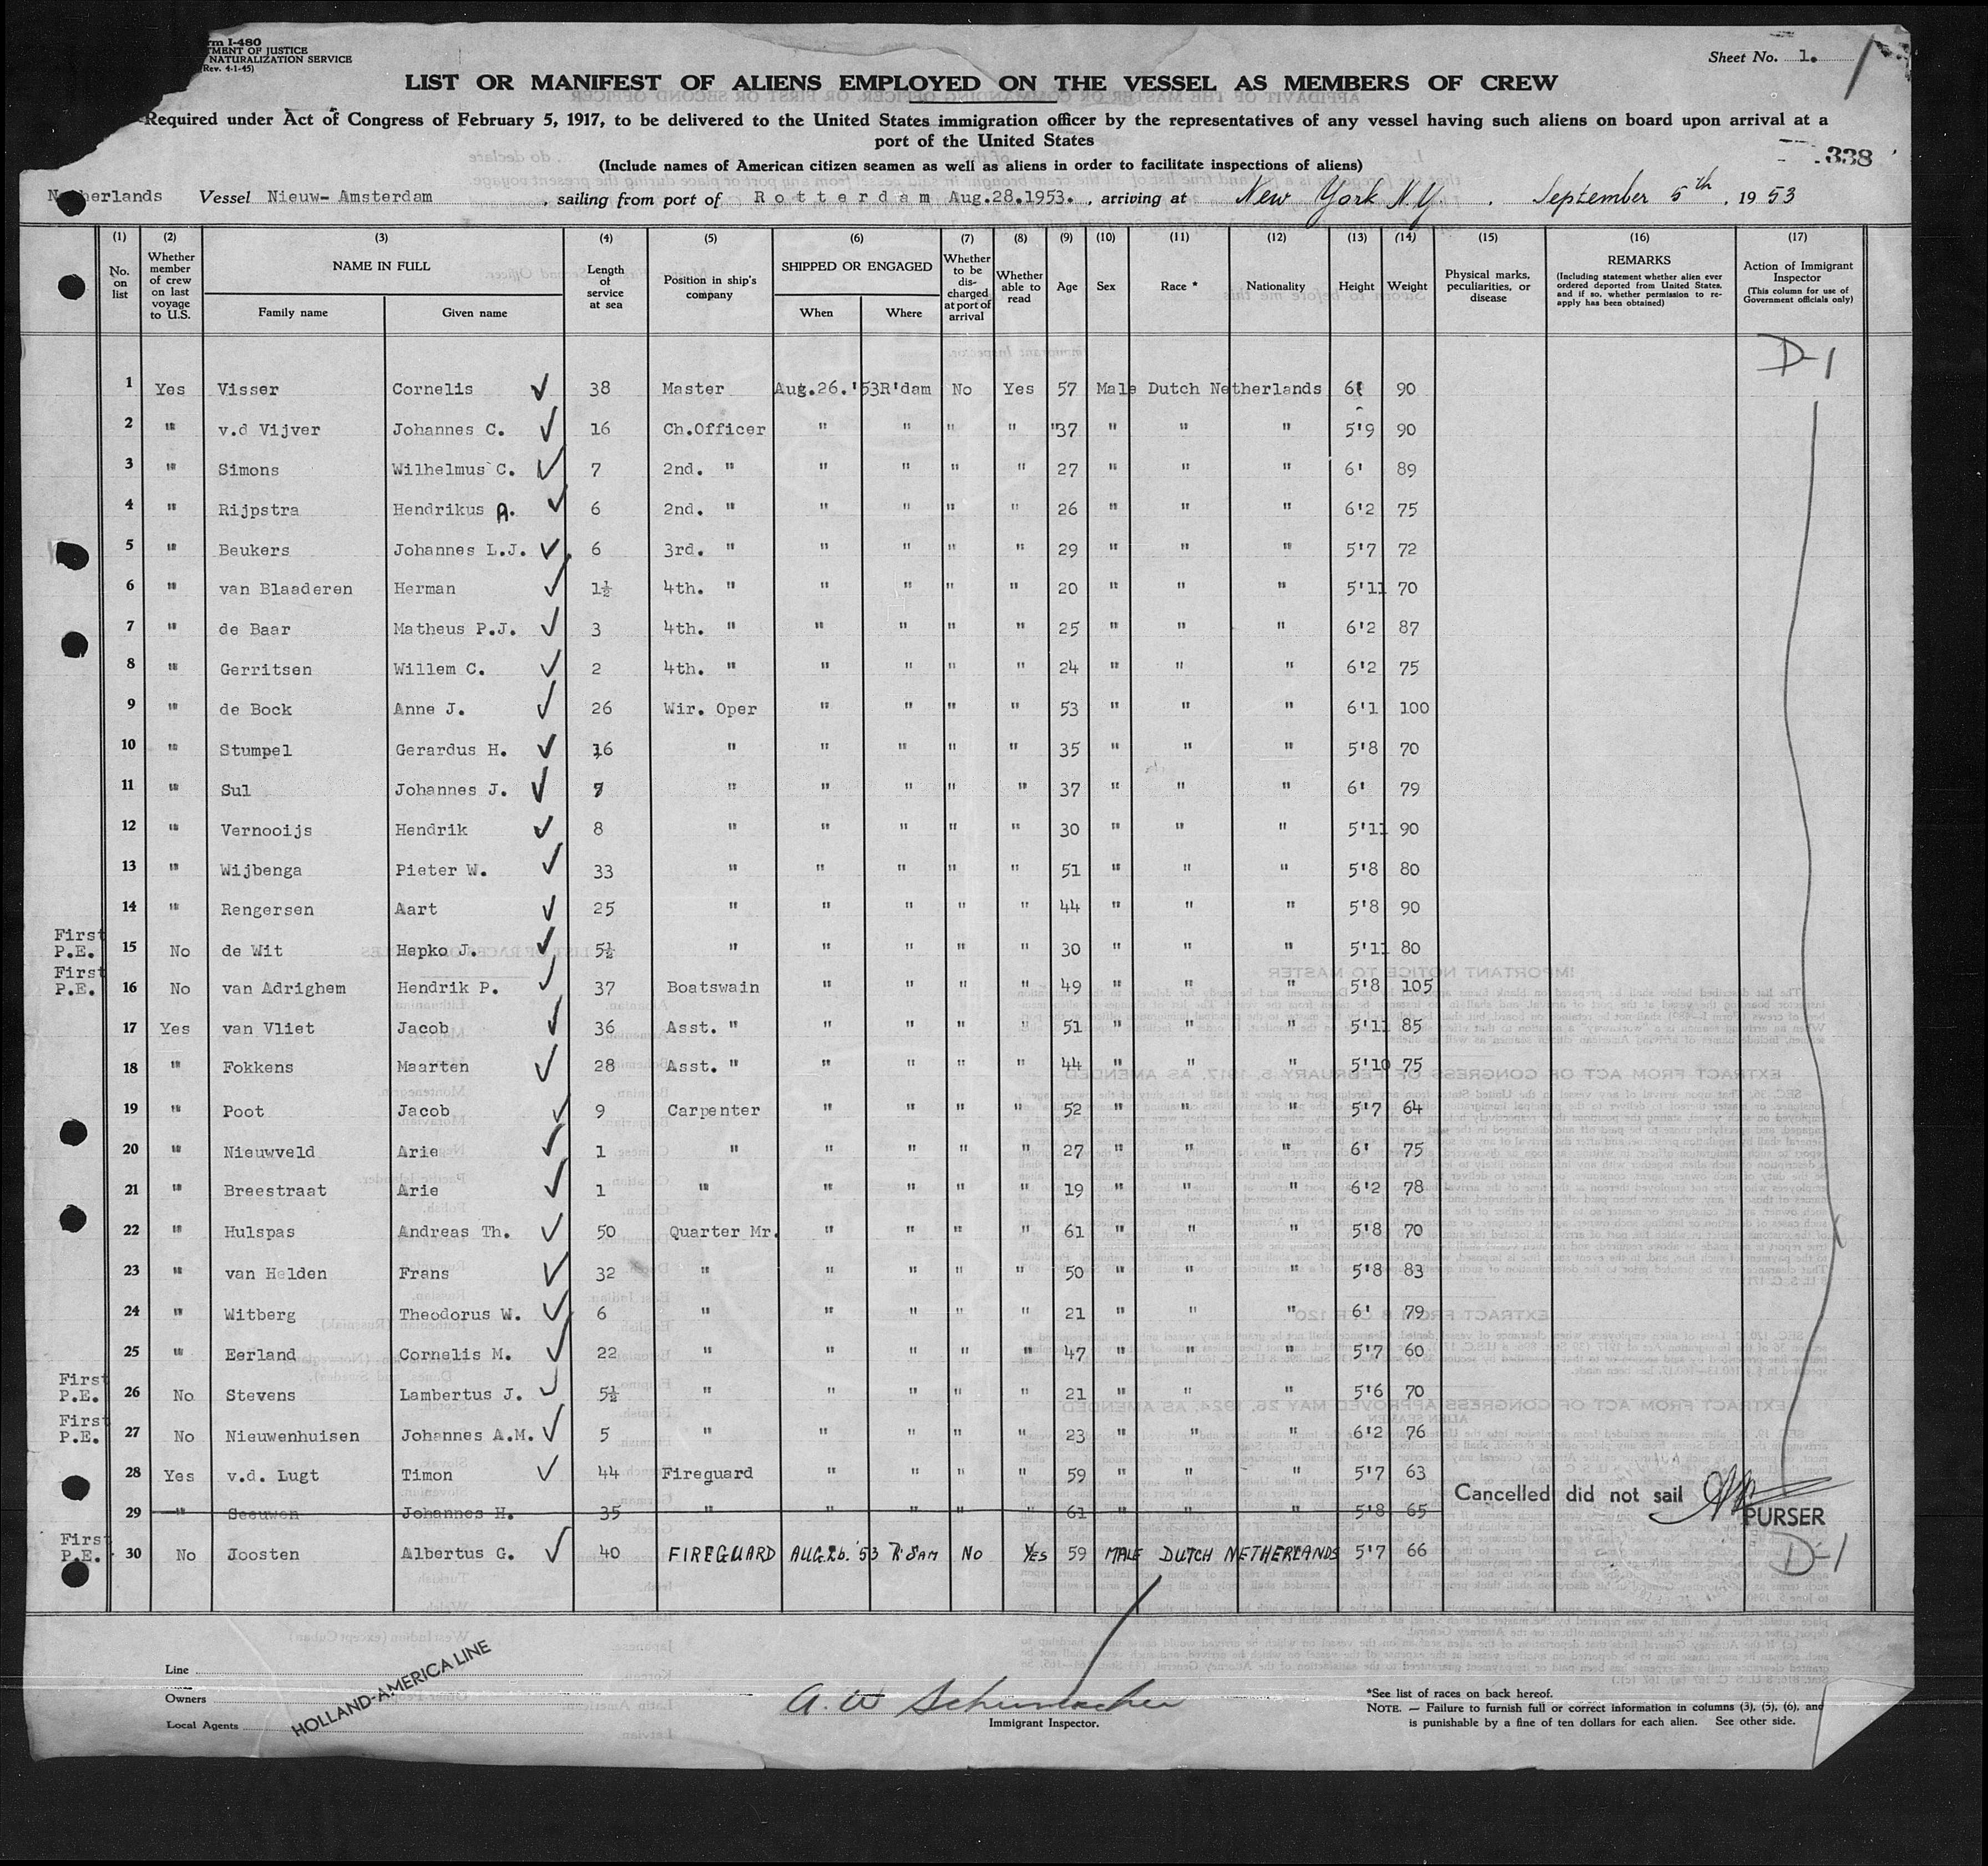 rm I-480
TMENT OF JUSTICE
NATURALIZATION SERVICE
(Rev. 4-1-45)
Sheet No. 1.
LIST OR MANIFEST OF ALIENS EMPLOYED ON THE VESSEL AS MEMBERS OF CREW
Required under Act of Congress of February 5, 1917, to be delivered to the United States immigration officer by the representatives of any vessel having such aliens on board upon arrival at a
port of the United States
(Include names of American citizen seamen as well as aliens in order to facilitate inspections of aliens)
338
Netherlands Vessel Nieuw-Amsterdam, sailing from port of Rotterdam Aug.28.1953., arriving at New York N.Y. September 5th, 1953
(1) (2) (3) (4) (5) (6) (7) (8) (9) (10) (11) (12) (13) (14) (15) (16) (17)
No. on list
Whether member of crew on last voyage to U.S.
NAME IN FULL
Family name Given name
Length of service at sea
Position in ship's company
SHIPPED OR ENGAGED
When Where
Whether to be discharged at port of arrival
Whether able to read
Age Sex Race * Nationality Height Weight
Physical marks, peculiarities, or disease
REMARKS
(Including statement whether alien ever ordered deported from United States, and if so, whether permission to re-apply has been obtained)
Action of Immigrant Inspector
(This column for use of Government officials only)
D-1
1 Yes Visser Cornelis ✓ 38 Master Aug.26.'53 R'dam No Yes 57 Male Dutch Netherlands 6' 90
2 " v.d Vijver Johannes C. ✓ 16 Ch.Officer " " " " "37 " " " 5'9 90
3 " Simons Wilhelmus C. ✓ 7 2nd. " " " " " 27 " " " 6' 89
4 " Rijpstra Hendrikus A. ✓ 6 2nd. " " " " " 26 " " " 6'2 75
5 " Beukers Johannes L.J. ✓ 6 3rd. " " " " " 29 " " " 5'7 72
6 " van Blaaderen Herman ✓ 1½ 4th. " " " " " 20 " " " 5'11 70
7 " de Baar Matheus P.J. ✓ 3 4th. " " " " " 25 " " " 6'2 87
8 " Gerritsen Willem C. ✓ 2 4th. " " " " " 24 " " " 6'2 75
9 " de Bock Anne J. ✓ 26 Wir. Oper " " " " 53 " " " 6'1 100
10 " Stumpel Gerardus H. ✓ 16 " " " " " 35 " " " 5'8 70
11 " Sul Johannes J. ✓ 7 " " " " " 37 " " " 6' 79
12 " Vernooijs Hendrik ✓ 8 " " " " " 30 " " " 5'11 90
13 " Wijbenga Pieter W. ✓ 33 " " " " " 51 " " " 5'8 80
14 " Rengersen Aart ✓ 25 " " " " " 44 " " " 5'8 90
First P.E. 15 No de Wit Hepko J. ✓ 5½ " " " " " 30 " " " 5'11 80
First P.E. 16 No van Adrighem Hendrik P. ✓ 37 Boatswain " " " " 49 " " " 5'8 105
17 Yes van Vliet Jacob ✓ 36 Asst. " " " " " 51 " " " 5'11 85
18 " Fokkens Maarten ✓ 28 Asst. " " " " " 44 " " " 5'10 75
19 " Poot Jacob ✓ 9 Carpenter " " " " 52 " " " 5'7 64
20 " Nieuwveld Arie ✓ 1 " " " " " 27 " " " 6' 75
21 " Breestraat Arie ✓ 1 " " " " " 19 " " " 6'2 78
22 " Hulspas Andreas Th. ✓ 50 Quarter Mr. " " " " 61 " " " 5'8 70
23 " van Helden Frans ✓ 32 " " " " " 50 " " " 5'8 83
24 " Witberg Theodorus W. ✓ 6 " " " " " 21 " " " 6' 79
25 " Eerland Cornelis M. ✓ 22 " " " " " 47 " " " 5'7 60
First P.E. 26 No Stevens Lambertus J. ✓ 5½ " " " " " 21 " " " 5'6 70
First P.E. 27 No Nieuwenhuisen Johannes A.M. ✓ 5 " " " " " 23 " " " 6'2 76
28 Yes v.d. Lugt Timon ✓ 44 Fireguard " " " " 59 " " " 5'7 63
29 " Seeuwen Johannes H. 35 " " " " " 61 " " " 5'8 65 Cancelled did not sail
PURSER
First P.E. 30 No Joosten Albertus G. ✓ 40 FIREGUARD AUG.26.'53 R'DAM NO YES 59 MALE DUTCH NETHERLANDS 5'7 66 D-1
Line
Owners
Local Agents
HOLLAND-AMERICA LINE
A. W Schumacher
Immigrant Inspector.
*See list of races on back hereof.
NOTE. — Failure to furnish full or correct information in columns (3), (5), (6), and
is punishable by a fine of ten dollars for each alien. See other side.